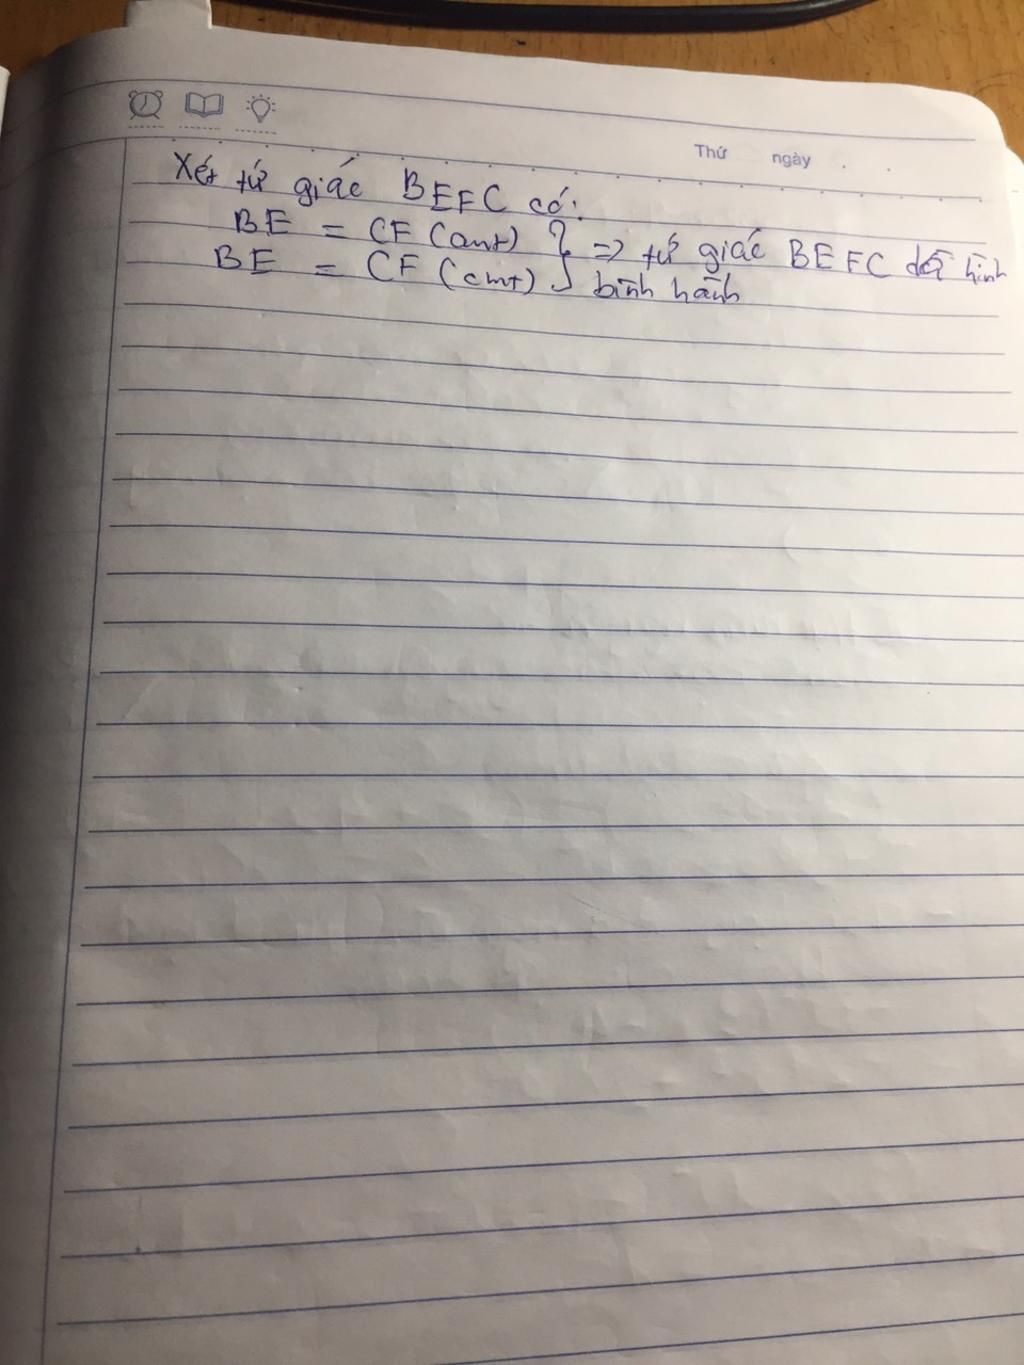 Thứ ngày
Xét tứ giác BEFC có:
BE = CF (cmt) } => tứ giác BEFC hình
BE = CF (cmt) } bình hành